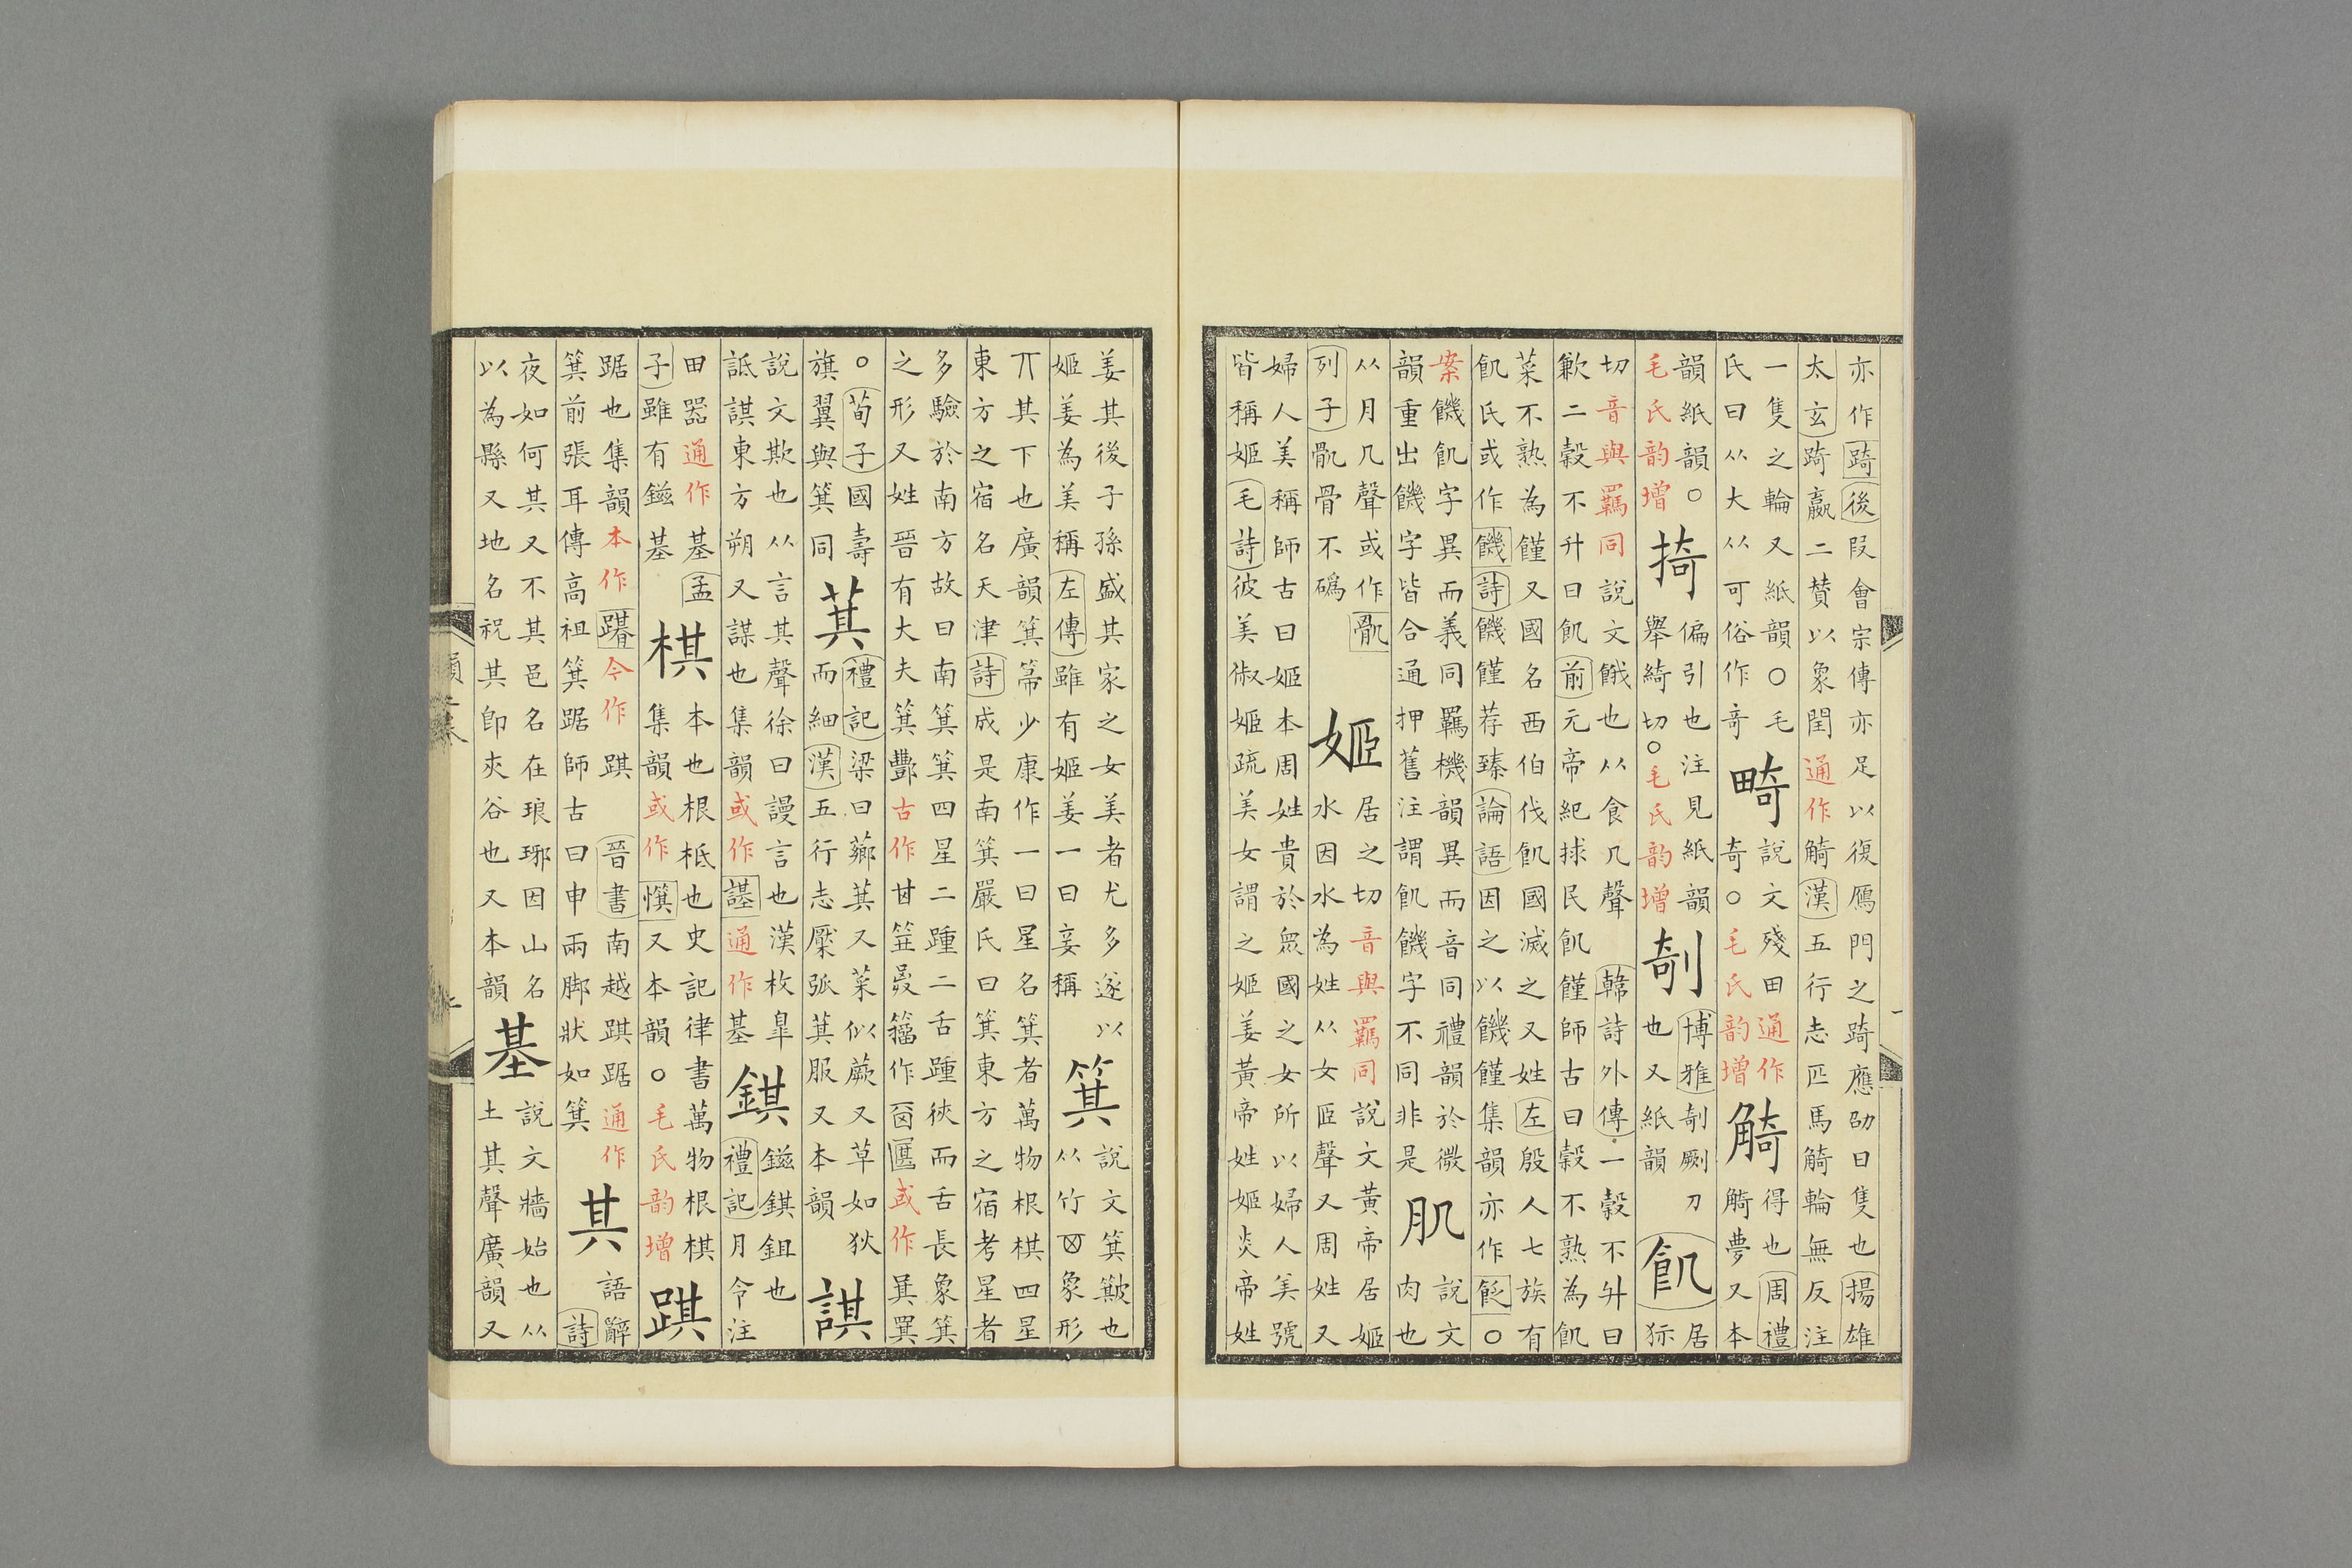 亦作踦後叚會宗傳亦足以復鴈門之踦應劭曰隻也揚雄
太玄踦嬴二贊以象閏通作觭漢五行志匹馬觭輪無反注
一隻之輪又紙韻○毛
氏曰从大从可俗作竒
畸
說文殘田通作
奇○毛氏韵增
觭
得也周禮
觭夢又本
韻紙韻○
毛氏韵增
掎
偏引也注見紙韻
舉綺切○毛氏韵增
剞
博雅剞劂刀
也又紙韻
飢
居
狋
切音與羈同說文餓也从食几聲韓詩外傳一穀不升曰
歉二穀不升曰飢前元帝紀捄民飢饉師古曰穀不熟為飢
菜不熟為饉又國名西伯伐飢國滅之又姓左殷人七族有
飢氏或作饑詩饑饉荐臻論語因之以饑饉集韻亦作○
案饑飢字異而義同羈機韻異而音同禮韻於微
韻重出饑字皆合通押舊注謂飢饑字不同非是
肌
說文
肉也
从月几聲或作
列子骨不
姬
居之切音與羈同說文黃帝居姬
水因水為姓从女𦣞聲又周姓又
婦人美稱師古曰姬本周姓貴於衆國之女所以婦人美號
皆稱姬毛詩彼美俶姬疏美女謂之姬姜黃帝姓姬炎帝姓
姜其後子孫盛其家之女美者尤多遂以
姬姜為美稱左傳雖有姬姜一曰妾稱
箕
說文箕簸也
从竹象形
丌其下也廣韻箕箒少康作一曰星名箕者萬物根棋四星
東方之宿名天津詩成是南箕嚴氏曰箕東方之宿考星者
多驗於南方故曰南箕箕四星二踵二舌踵狹而舌長象箕
之形又姓晉有大夫箕酆古作𠀠或作
○荀子國壽
旗翼與箕同
萁
禮記梁曰薌萁又菜似蕨又草如狄
而細漢五行志檿弧萁服又本韻
諆
說文欺也从言其聲徐曰謾言也漢枚皐
詆諆東方朔又謀也集韻或作諅通作基
錤
鎡錤鉏也
禮記月令注
田器通作基孟
子雖有鎡基
棋
本也根柢也史記律書萬物根棋
集韻或作又本韻○毛氏韵增
踑
踞也集韻本作今作踑
箕前張耳傳高祖箕踞師古曰申兩脚狀如箕
晉書南越踑踞通作
其
語辭
詩
夜如何其又不其邑名在琅琊因山名
以為縣又地名祝其卽夾谷也又本韻
基
說文牆始也从
土其聲廣韻又